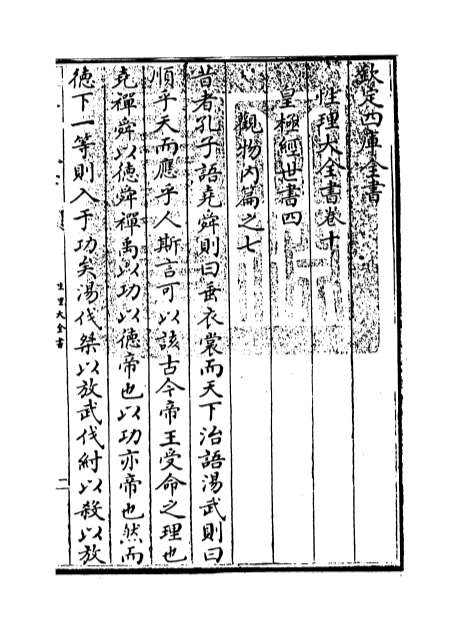 欽定四庫全書
性理大全書卷十
皇極經世書四
觀物内篇之七
昔者孔子語堯舜則曰垂衣裳而天下治語湯武則曰
順乎天而應乎人斯言可以該古今帝王受命之理也
堯禪舜以徳舜禪禹以功以徳帝也以功亦帝也然而
徳下一等則入于功矣湯伐桀以放武伐紂以殺以放
性理大全書